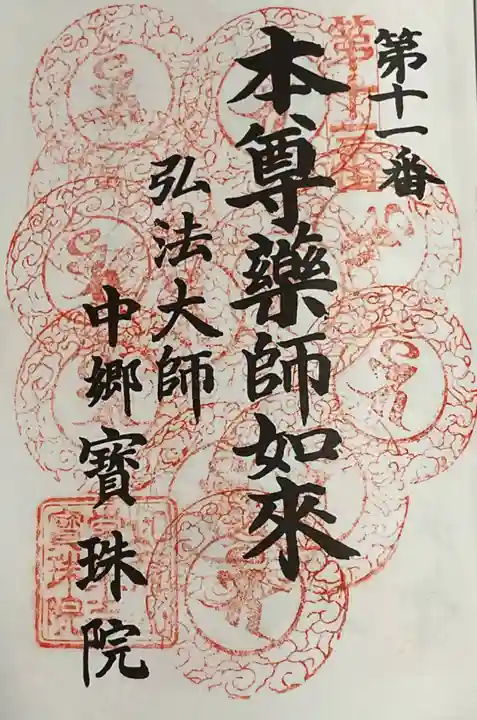 第十一番
本尊藥師如來
弘法大師
中郷寶珠院
寶珠院